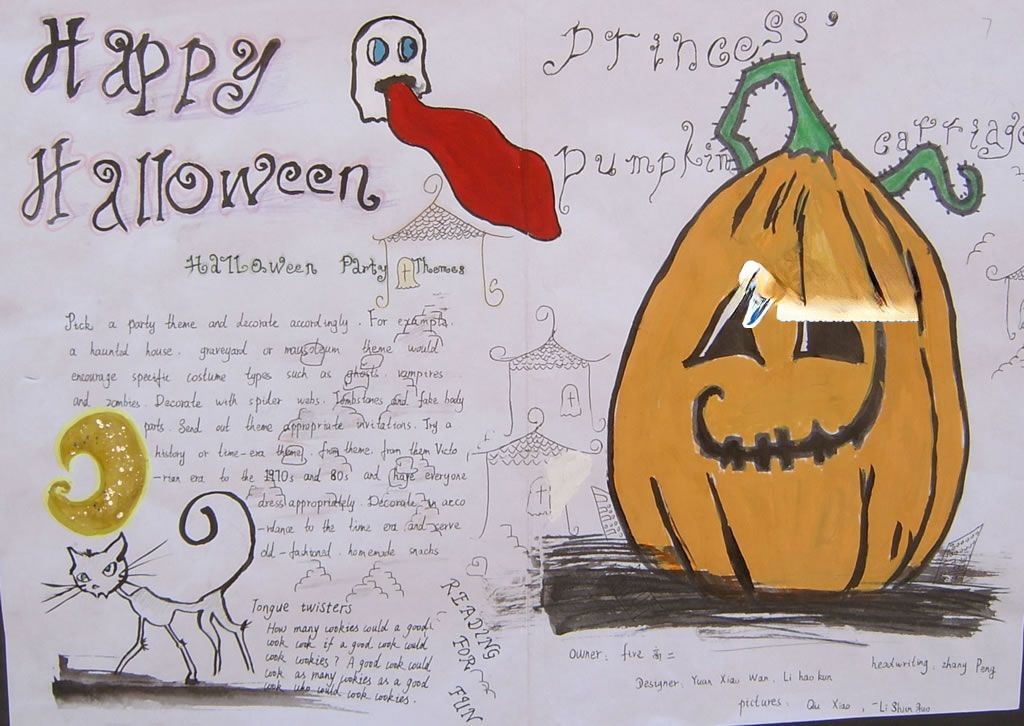 Happy
Halloween
Princess'
pumpkin carriage
Halloween Party Themes
Pick a party theme and decorate accordingly. For example,
a haunted house. graveyard or mausoleum theme would
encourage specific costume types such as ghosts. vampires
and zombies. Decorate with spider webs. Tombstones and fake body
parts. Send out theme appropriate invitations. Try a
history or time-era theme. from them Victo
-rian era to the 1970s and 80s and have everyone
dress appropriately. Decorate in acco
-rdance to the time era and serve
old-fashioned. homemade snacks
Tongue twisters
How many cookies could a good
cook cook if a good cook could
cook cookies? A good cook could
cook as many cookies as a good
cook who could cook cookies.
READING
FOR
FUN
Owner: five 高二
headwriting: zhang Peng
Designer: Yuan Xiao Wan. Li hao kun
pictures: Qu Xiao, Li Shun